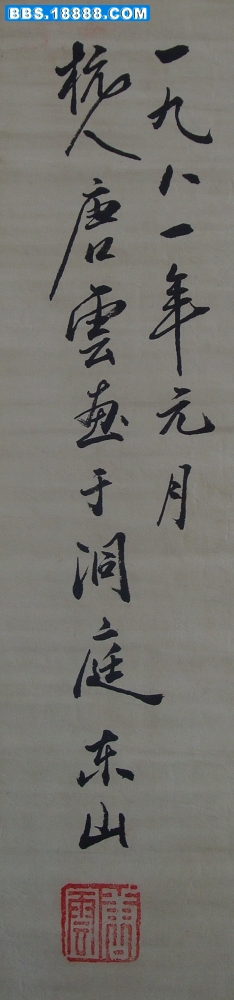 BBS.18888.COM
一九八一年元月
杭人唐雲画于洞庭东山
唐雲